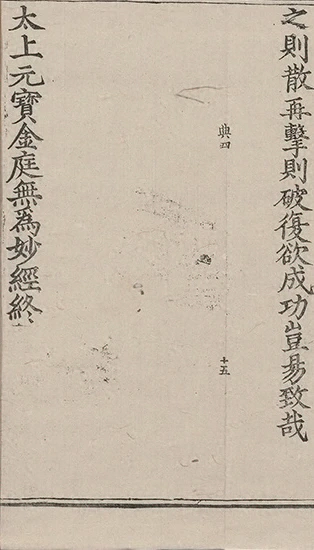 之則散再擊則破復欲成功豈易致哉
典四
十五
太上元寶金庭無為妙經終